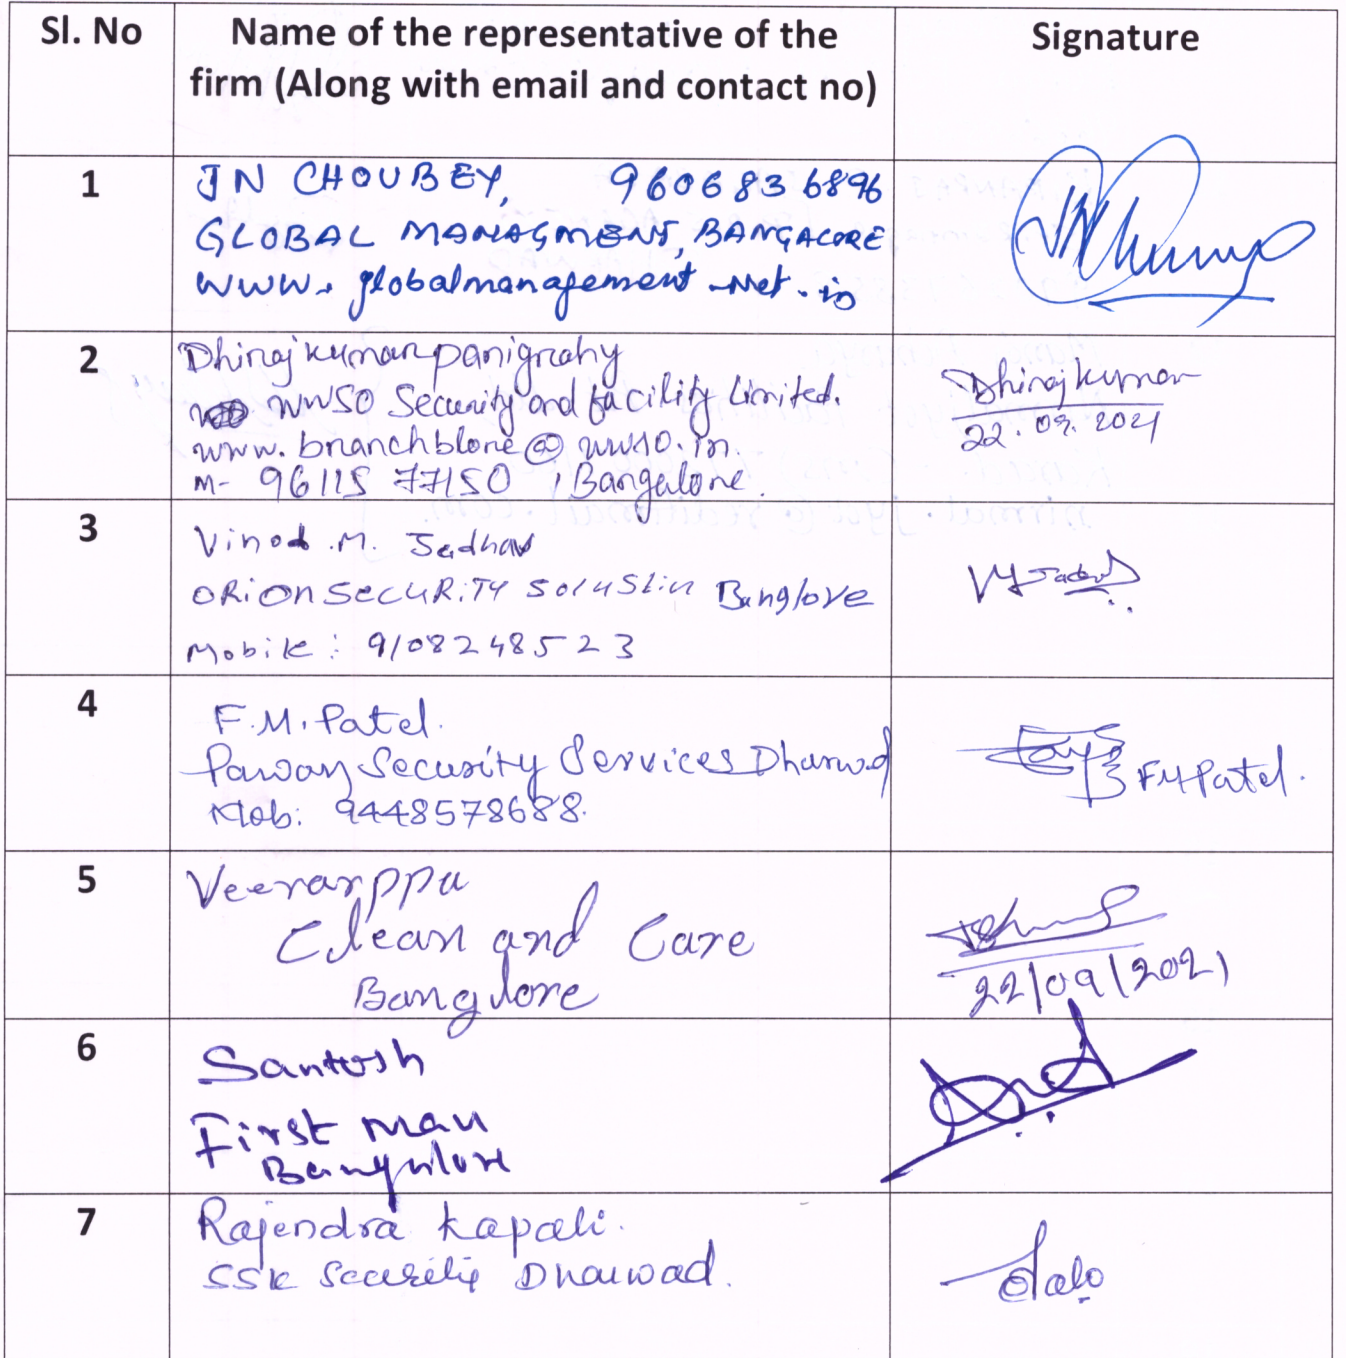 Sl. No
Name of the representative of the
firm (Along with email and contact no)
Signature
1
JN CHOUBEY, 9606836896
GLOBAL MANAGMENT, BANGALORE
www.globalmanagement.Net.in
2
Dhiraj kumar panigrahy
WWSO Security and facility Limited.
www.branchblore@wwso.in.
M- 96115 77150, Bangalore.
Dhiraj kumar
22.09.2021
3
Vinod .M. Jadhav
ORiON SECURiTY Soluslin Banglove
Mobile: 9108248523
4
F.M. Patel.
Pawan Security Services Dharwad
Mob: 9448578688.
FMPatel.
5
Veerarppa
Clean and Care
Banglore
22/09/2021
6
Santosh
First man
Bangalore
7
Rajendra kapali.
SSK Dharwad.